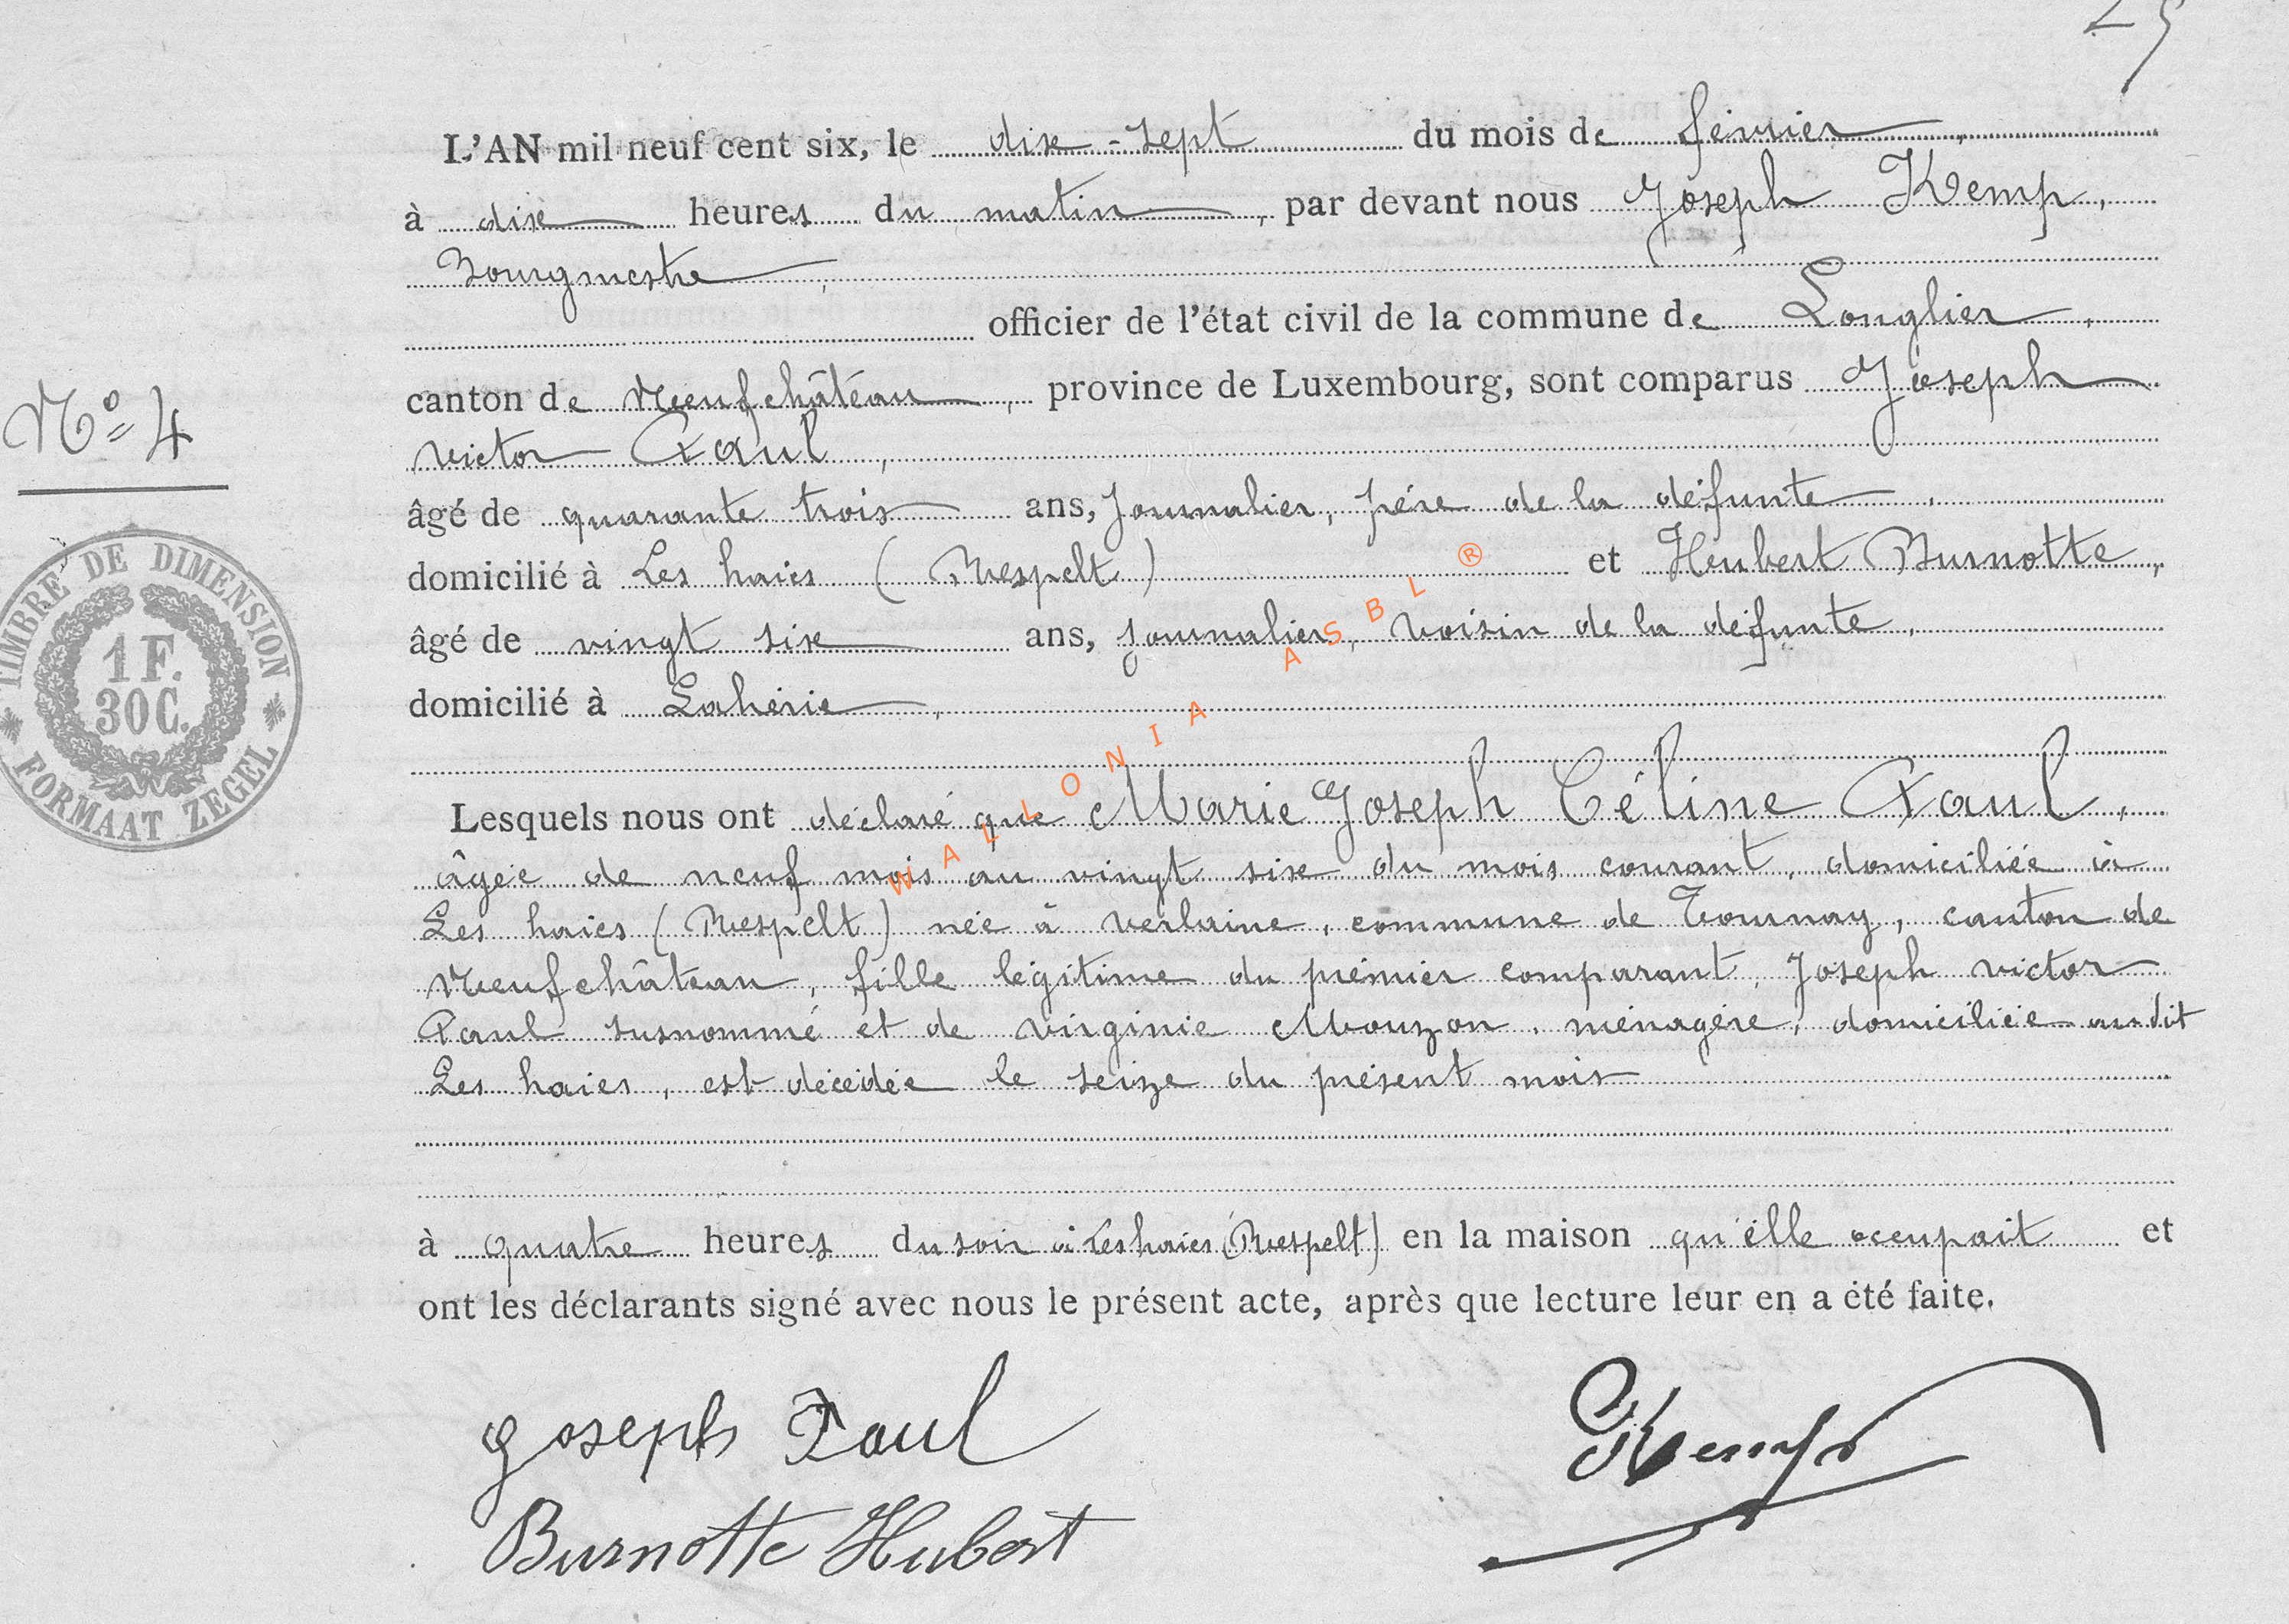 25
L'AN mil neuf cent six, le dix-sept du mois de février,
à dix heures du matin, par devant nous Joseph Kemp,
Bourgmestre,
officier de l'état civil de la commune de Longlier,
canton de Neufchâteau, province de Luxembourg, sont comparus Joseph
victor Paul,
N° 4
âgé de quarante trois ans, journalier, père de la défunte,
domicilié à Les haies (Respelt) et Hubert Burnotte,
âgé de vingt six ans, journalier, voisin de la défunte,
domicilié à Lahérie,
TIMBRE DE DIMENSION
1 F.
30 C.
FORMAAT ZEGEL
WALLONIA ASBL ®
Lesquels nous ont déclaré que Marie Joseph Céline Paul,
âgée de neuf mois au vingt six du mois courant, domiciliée à
Les haies (Respelt) née à Verlaine, commune de Tournay, canton de
Neufchâteau, fille légitime du prémier comparant, Joseph victor
Paul susnommé et de virginie Mouzon, ménagère, domiciliée audit
Les haies, est décédée le seize du présent mois
à quatre heures du soir à Les haies (Respelt) en la maison qu'elle occupait et
ont les déclarants signé avec nous le présent acte, après que lecture leur en a été faite.
Joseph Paul
Kemp
Burnotte Hubert